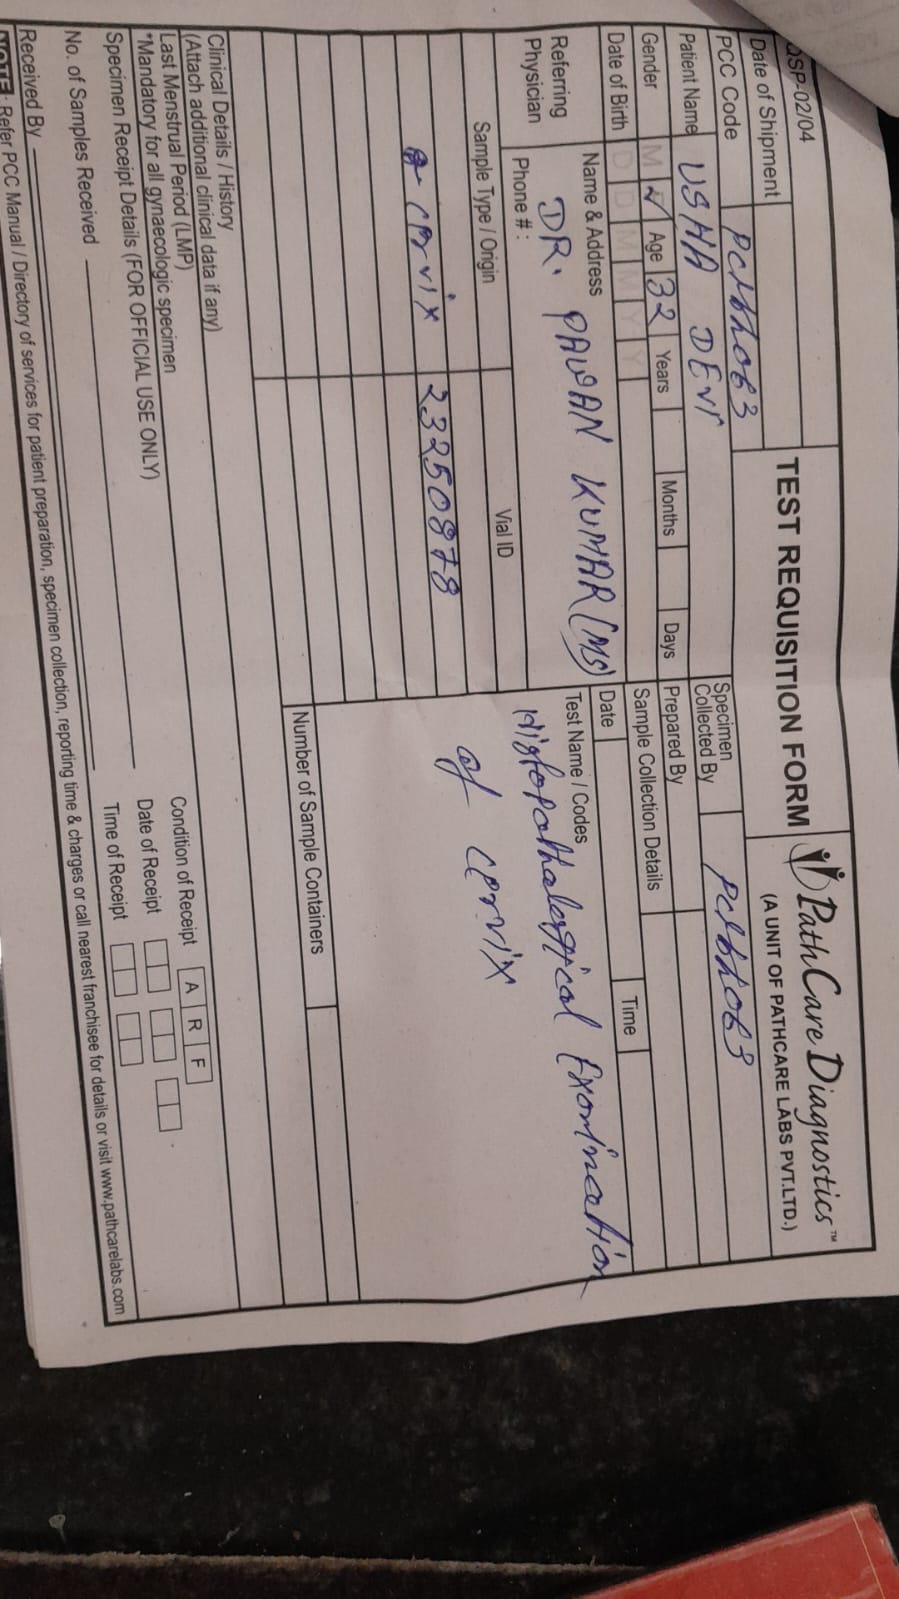 QSP-02/04
TEST REQUISITION FORM
PathCare Diagnostics™
(A UNIT OF PATHCARE LABS PVT.LTD.)
Date of Shipment
PCC Code
Specimen Collected By
Patient Name USHA DEVI
Prepared By
Gender M ✓ Age 32 Years Months Days
Sample Collection Details
Date of Birth D D M M Y Y
Date Time
Referring Physician
Name & Address
DR. PAWAN KUMAR (MS)
Phone # :
Test Name / Codes
Histopathological Examination
of cervix
Sample Type / Origin Vial ID
cervix 23250878
Number of Sample Containers
Clinical Details / History
(Attach additional clinical data if any)
Last Menstrual Period (LMP)
*Mandatory for all gynaecologic specimen
Specimen Receipt Details (FOR OFFICIAL USE ONLY)
Condition of Receipt A R F
Date of Receipt
Time of Receipt
No. of Samples Received
Received By
NOTE : Refer PCC Manual / Directory of services for patient preparation, specimen collection, reporting time & charges or call nearest franchisee for details or visit www.pathcarelabs.com